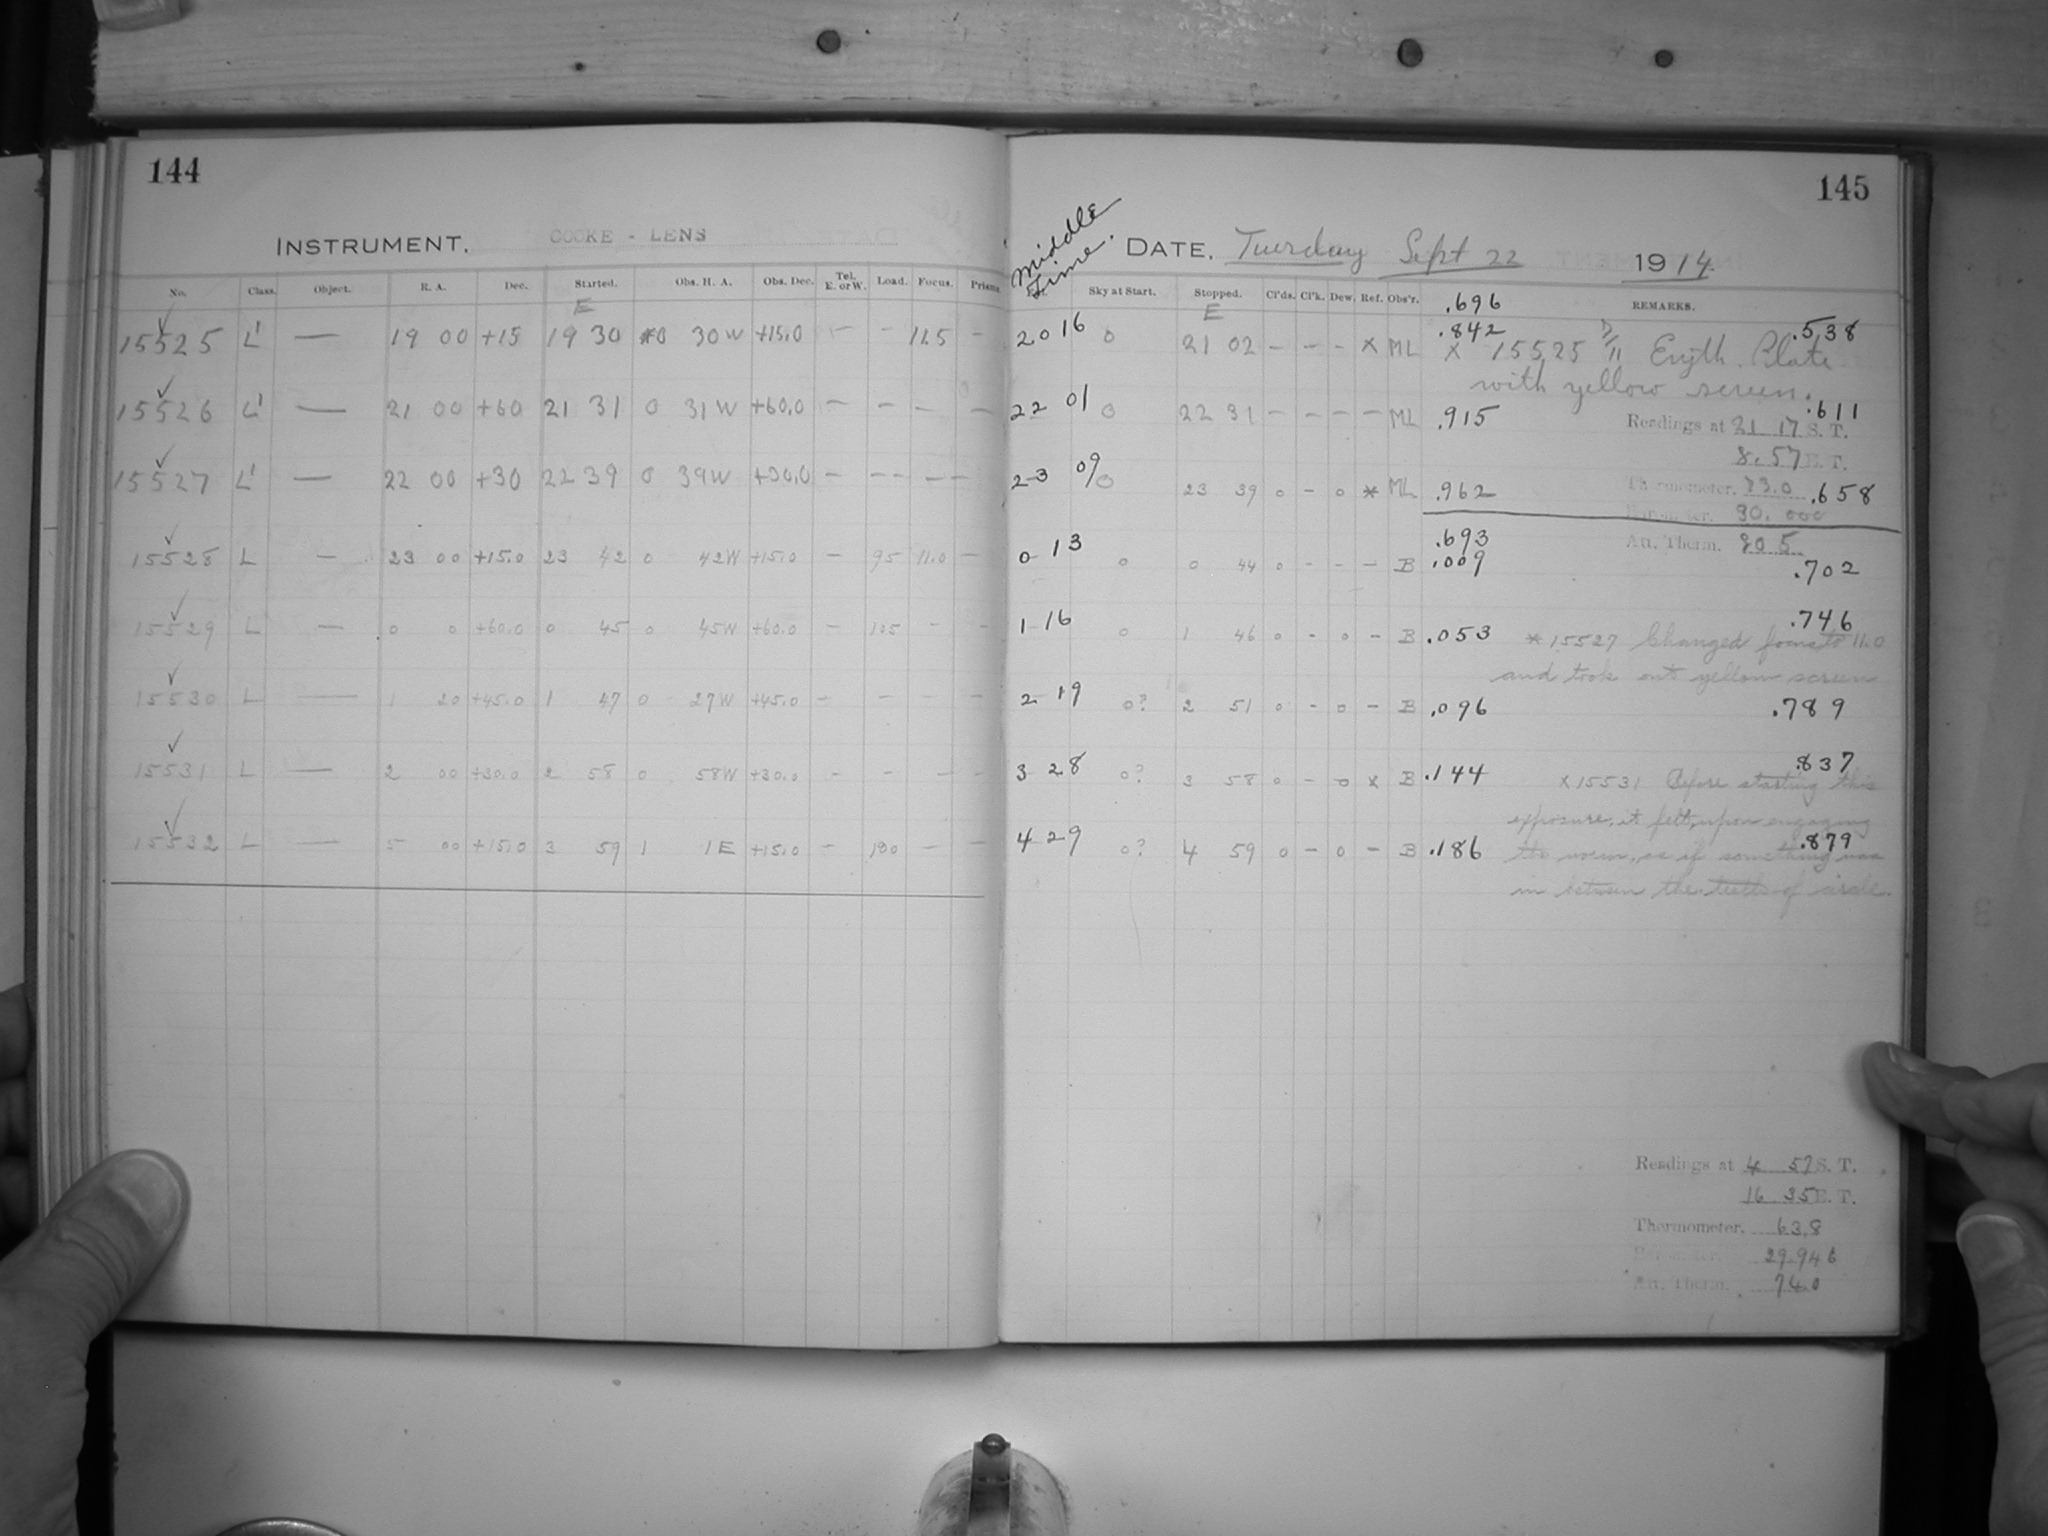 144
INSTRUMENT. COOKE - LENS
No. Class. Object. R. A. Dec. Started. Obs. H. A. Obs. Dec. Tel. E. or W. Load. Focus. Prisms
E
15525 L' — 19 00 +15 19 30 0 30 W +15.0 — - 11.5 -
15526 L' — 21 00 +60 21 31 0 31 W +60.0 — - — —
15527 L' — 22 00 +30 22 39 0 39 W +30.0 — - - - —
15528 L — 23 00 +15.0 23 42 0 42 W +15.0 — 95 11.0 —
15529 L — 0 0 +60.0 0 45 0 45 W +60.0 — 105 - -
15530 L — 1 20 +45.0 1 47 0 27 W +45.0 - - - -
15531 L — 2 00 +30.0 2 58 0 58 W +30.0 - - - -
15532 L — 5 00 +15.0 3 59 1 1 E +15.0 - 100 - -
145
Middle Time.
DATE. Tuesday Sept 22 1914
Sky at Start. Stopped. Cl'ds. Cl'k. Dew. Ref. Obs'r. .696 REMARKS.
E
20 16 0 21 02 — - - x ML .842 .538
x 15525 Eryth. Plate
with yellow screen.
22 01 0 22 31 — - - - ML .915 .611
Readings at 21 17 S. T.
8.57 E. T.
23 09 0 23 39 0 - 0 * ML .962 .658
Thermometer. 73.0
Barometer. 30.000
Att. Therm. 80.5
.693
0 13 0 0 44 0 - - - B .009 .702
1 16 0 1 46 0 - 0 - B .053 .746
* 15527 Changed focus to 11.0
and took out yellow screen
2 19 0? 2 51 0 - 0 - B .096 .789
3 28 0? 3 58 0 - 0 x B .144 .837
x 15531 Before starting this
exposure, it felt, upon engaging
4 29 0? 4 59 0 - 0 - B .186 .879
the worm, as if something was
in between the teeth of circle.
Readings at 4 57 S. T.
16 35 E. T.
Thermometer. 63.8
Barometer. 29.946
Att. Therm. 74.0